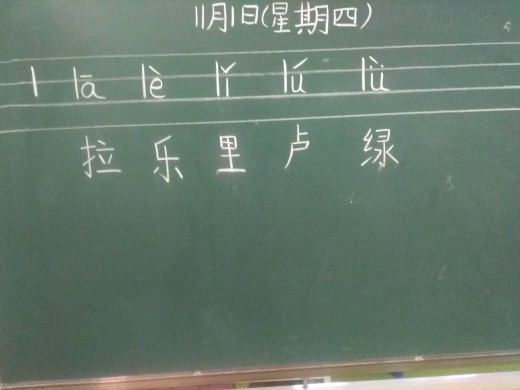 11月1日(星期四)
l lā lè lǐ lú lǜ
拉 乐 里 卢 绿